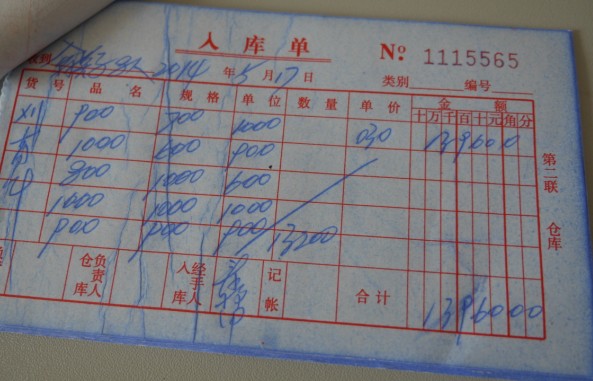 入库单 № 1115565
收到 2014年5月17日 类别 编号
货号 品名 规格 单位 数量 单价 金额
十万千百十元角分
900 700 1000 030 1396000
1000 600 900
800 1000 600
1000 1000 1000
900 900 900 13200
仓库负责人 入库经手人 记帐 合计 1396000
第二联 仓库